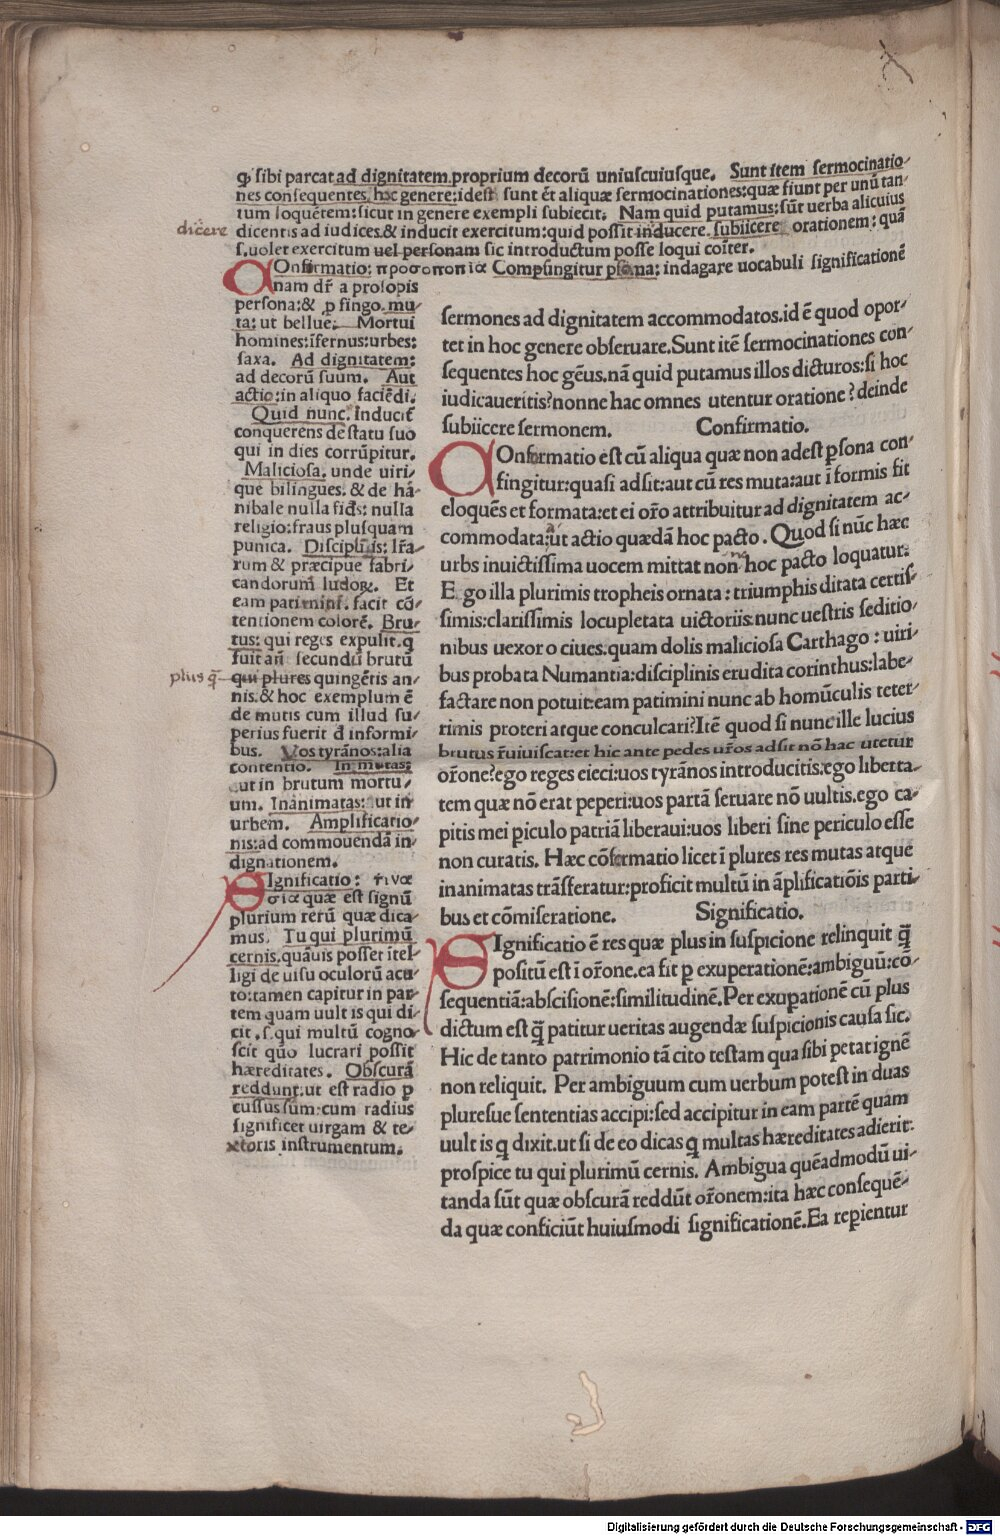 ꝙ sibi parcat ad dignitatem proprium decorū uniuscuiusque. Sunt item sermocinatio⸗
nes consequentes hoc genere: idest sunt & aliquæ sermocinationes: quæ fiunt per unū tan⸗
tum loquētem: sicut in genere exempli subiecit. Nam quid putamus: sūt uerba alicuius
dicere
dicentis ad iudices. & inducit exercitum: quid possit inducere. subiicere orationem: quā
s. uolet exercitum uel personam sic introductum posse loqui cōiter.
COnformatio: προσοποπιια Compsingitur psona: indagare uocabuli significationē
nam dr̄ a prosopis
persona: & p fingo. mu⸗
ta: ut bellue. Mortui
homines: īfernus: urbes:
saxa. Ad dignitatem:
ad decorū suum. Aut
actio: in aliquo faciēdi.
Quid nunc. Inducit
conquerens de statu suo
qui in dies corrūpitur.
Maliciosa. unde uiri⸗
que bilingues. & de hā⸗
nibale nulla fides: nulla
religio: fraus plusquam
punica. Disciplinis: lr̄a⸗
rum & præcipue fabri⸗
candorum ludoꝝ. Et
eam patimini. facit cō⸗
tentionem colorē. Bru⸗
tus: qui reges expulit. q
fuit an̄ secundū brutū
plus q̄
qui plures quingētis an⸗
nis. & hoc exemplum ē
de mutis cum illud su⸗
perius fuerit d̄ informi⸗
bus. Vos tyrānos: alia
contentio. In mutas:
ut in brutum mortu⸗
um. Inanimatas: ut in
urbem. Amplificatio⸗
nis: ad commouendā in⸗
dignationem.
SIgnificatio:
quæ est signū
plurium rerū quæ dica⸗
mus. Tu qui plurimū
cernis. quāuis posset ītel⸗
ligi de uisu oculorū acu⸗
to: tamen capitur in par⸗
tem quam uult is qui di⸗
cit. s. qui multū cogno⸗
scit quō lucrari possit
hæreditates. Obscurā
reddunt: ut est radio p
cussus sum: cum radius
significet uirgam & te⸗
xtoris instrumentum.
sermones ad dignitatem accommodatos. id ē quod opor⸗
tet in hoc genere obseruare. Sunt itē sermocinationes con⸗
sequentes hoc gēus. nā quid putamus illos dicturos: si hoc
iudicaueritis? nonne hac omnes utentur oratione? deinde
subiicere sermonem. Confirmatio.
COnformatio est cū aliqua quæ non adest psona con⸗
fingitur: quasi adsit: aut cū res muta: aut ī formis fit
eloquēs et formata: et ei or̄o attribuitur ad dignitatem ac⸗
commodata: ut actio quædā hoc pacto. Quod si nūc hæc
urbs inuictissima uocem mittat non hoc pacto loquatur:
E go illa plurimis tropheis ornata: triumphis ditata certis⸗
simis: clarissimis locupletata uictoriis: nunc uestris seditio⸗
nibus uexor o ciues: quam dolis maliciosa Carthago: uiri⸗
bus probata Numantia: disciplinis erudita corinthus: labe⸗
factare non potuit: eam patimini nunc ab homūculis teter⸗
rimis proteri atque conculcari? Itē quod si nunc ille lucius
brutus r̄uiuiscat: et hic ante pedes ur̄os adsit nō hac utetur
or̄one? ego reges eieci: uos tyrānos introducitis. ego liberta⸗
tem quæ nō erat peperi: uos partā seruare nō uultis. ego ca⸗
pitis mei piculo patriā liberaui: uos liberi sine periculo esse
non curatis. Hæc cōformatio licet ī plures res mutas atque
inanimatas trāsferatur: proficit multū in āplificatiōis parti⸗
bus et cōmiseratione. Significatio.
SIgnificatio ē res quæ plus in suspicione relinquit q̄
positū est ī or̄one. ea fit p exuperationē: ambiguū: cō⸗
sequentiā: abscisionē: similitudinē. Per exupationē cū plus
dictum est q̄ patitur ueritas augendæ suspicionis causa sic.
Hic de tanto patrimonio tā cito testam qua sibi petat ignē
non reliquit. Per ambiguum cum uerbum potest in duas
pluresue sententias accipi: sed accipitur in eam partē quam
uult is q dixit. ut si de eo dicas q multas hæreditates adierit:
prospice tu qui plurimū cernis. Ambigua quēadmodū ui⸗
tanda sūt quæ obscurā reddūt or̄onem: ita hæc consequē⸗
da quæ conficiūt huiusmodi significationē. Ea repientur
Digitalisierung gefördert durch die Deutsche Forschungsgemeinschaft - DFG